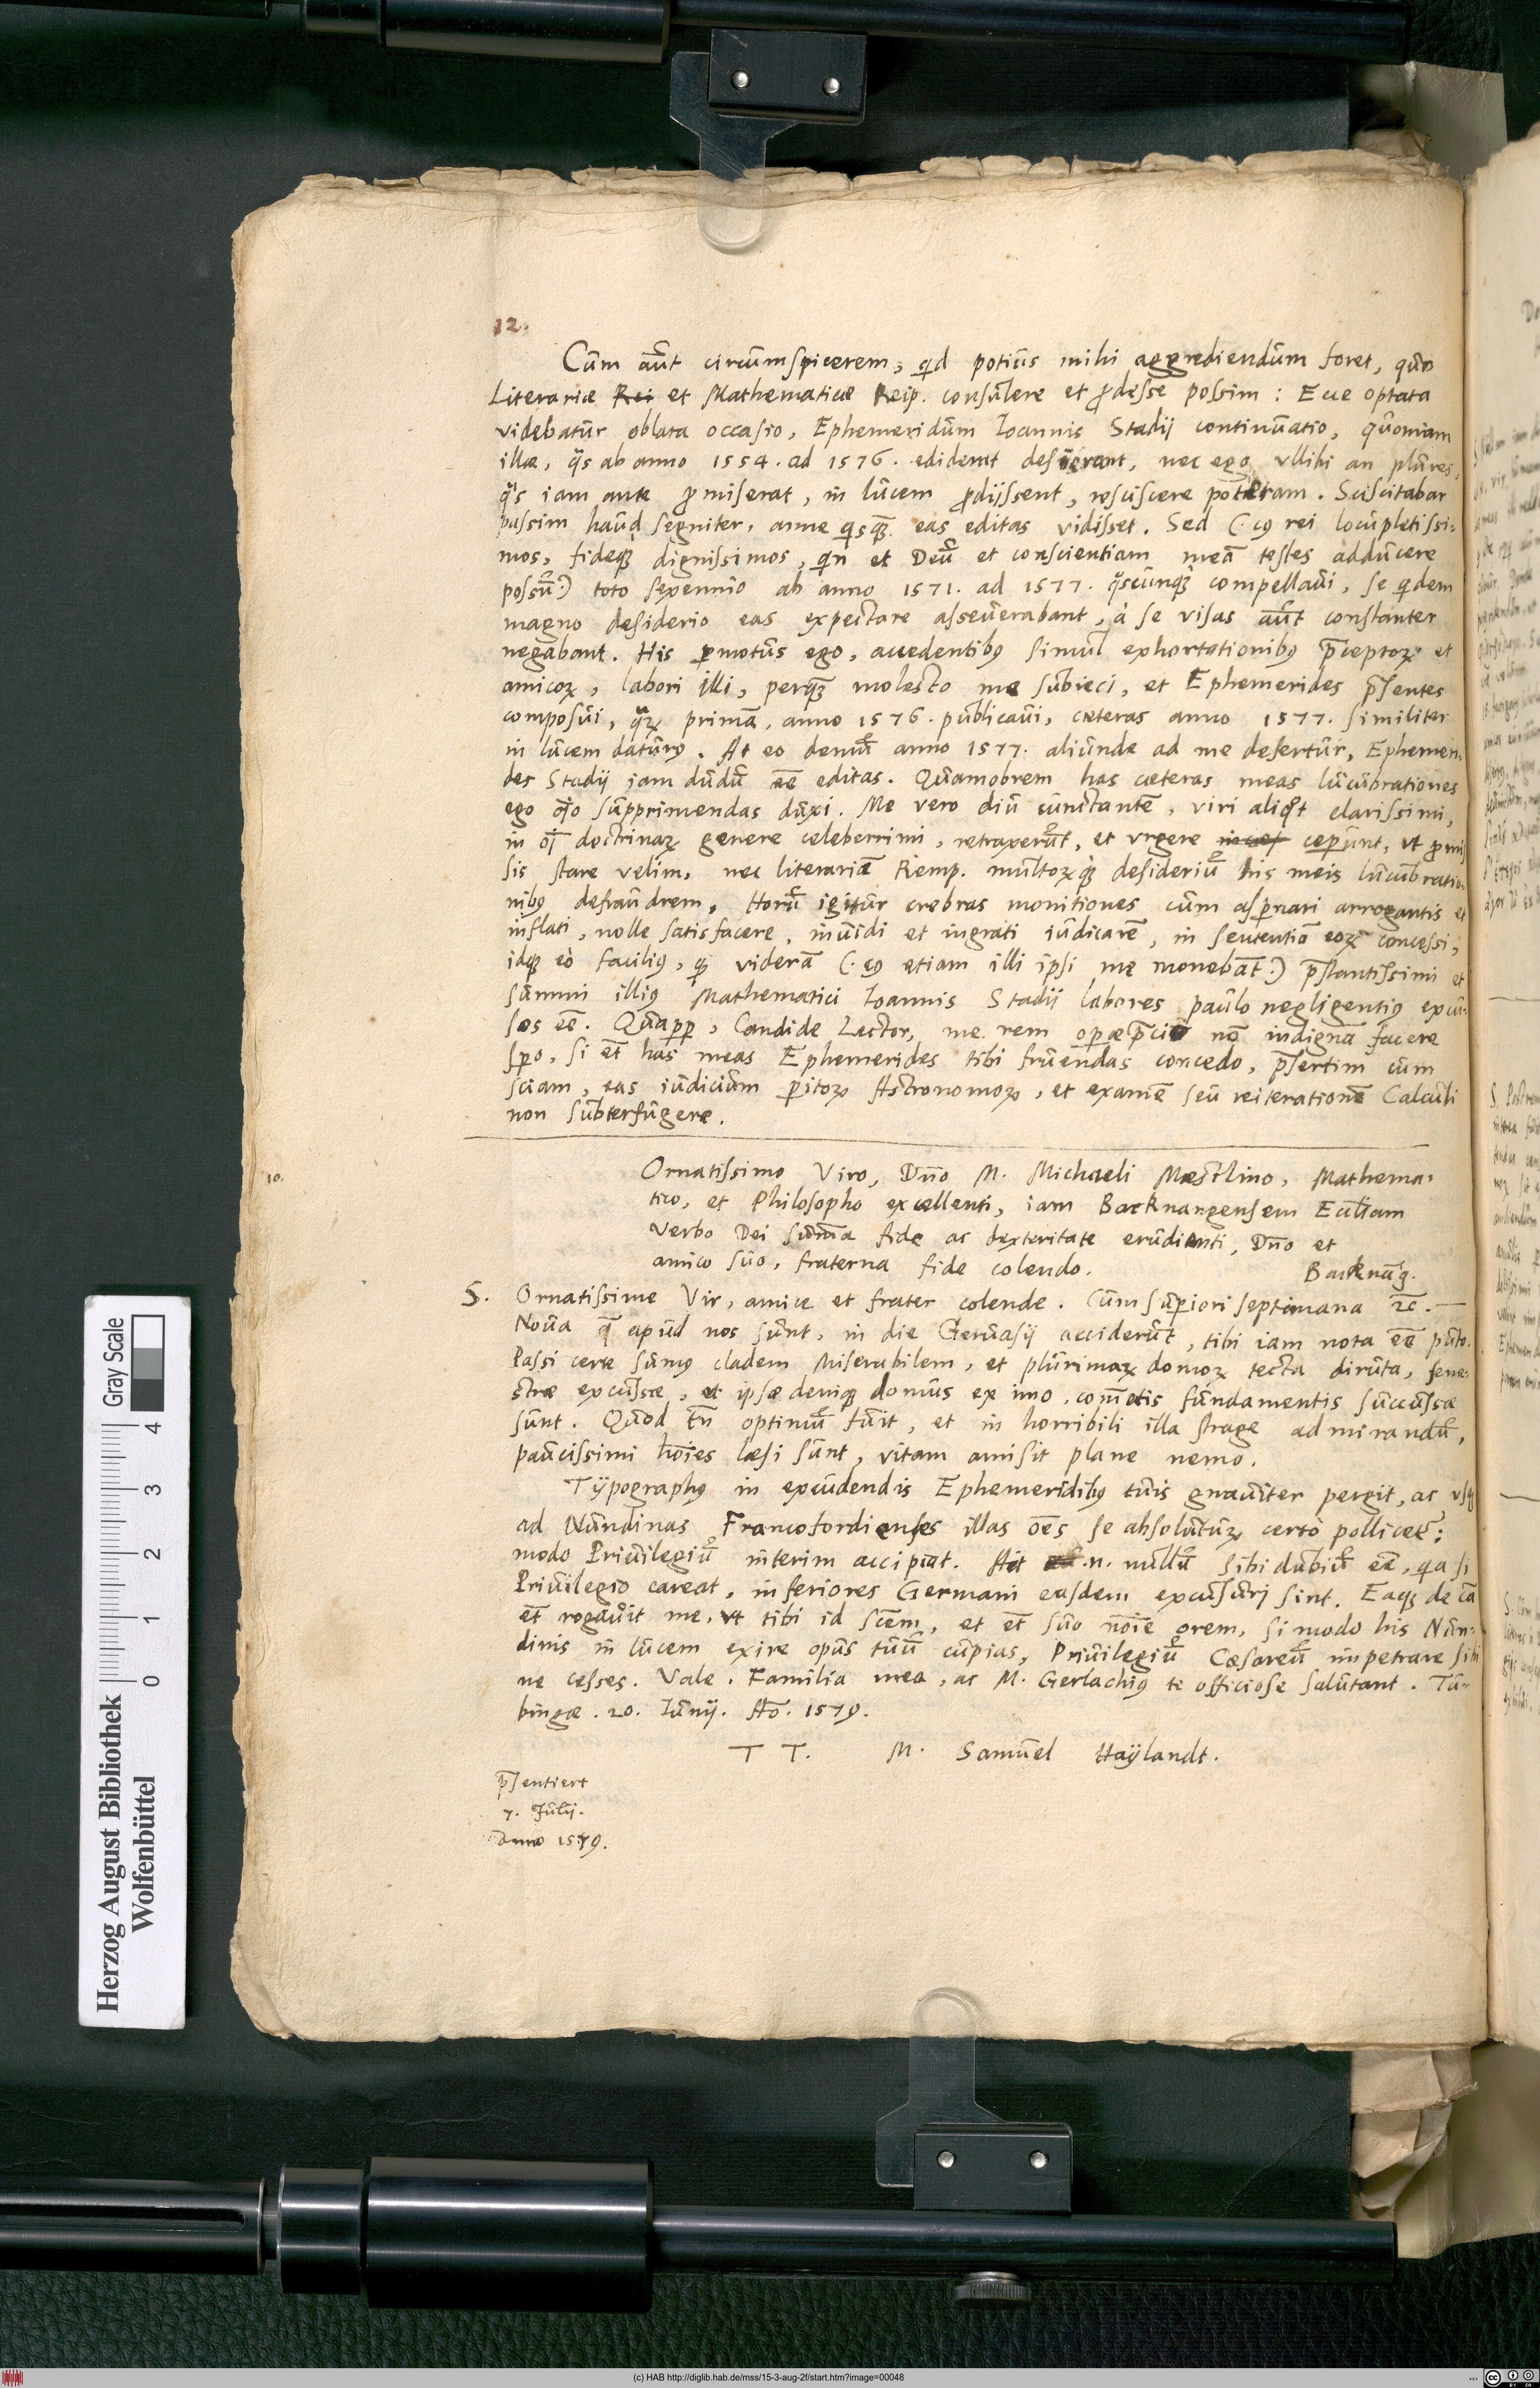 12.
Cum aũt circumspicerem, qid potius mihi aggrediendum foret, quo
Literariæ Rei et Mathematicæ Reip. consulere et ꝓdesse possim : Ecce optata
videbatur oblata occasio, Ephemeridum Ioannis Stadij continuatio, quoniam
illæ, qͣs ab anno 1554. ad 1576. ediderat desierant, nec ego ullibi an plures,
qͣs iam ante ꝓmiserat, in lucem ꝓdijssent, resciscere poteram. Sciscitabar
passim haud segniter, anne qisqͣ eas editas vidisset. Sed (: cꝰ rei locupletissi-
mos, fideqꝫ dignissimos, qin et Deũ et conscientiam meã testes adducere
possũ:) toto sexennio ab anno 1571. ad 1577. qͦscunqꝫ compellavi, se qidem
magno desiderio eas expectare asseuerabant, à se visas aũt constanter
negabant. His ꝑmotus ego, accedentibꝰ simul exhortationibꝰ p̃ceptoꝝ et
amicoꝝ, labori illi, perqͣ molesto me subieci, et Ephemerides p̃sentes
composui, qͣꝝ primã, anno 1576. publicaui, cæteras anno 1577. similiter
in lucem daturꝰ. At eo demũ anno 1577. aliunde ad me defertur, Ephemeri-
des Stadij iam dudũ eẽ editas. Quamobrem has cæteras meas lucubrationes
ego oĩo supprimendas duxi. Me vero diu cunctantẽ, viri aliqͦt clarissimi,
in oĩ doctrinaꝝ genere celeberrimi, retraxerũt, et vrgere ceperunt, vt ꝓmis
sis stare velim, nec literariã Remp. multoꝝqꝫ desideriũ his meis lucubratio-
nibꝰ defraudrem. Horũ igitur crebras monitiones cum asꝑnari arrogantis et
inflati, nolle satisfacere, inuidi et ingrati iudicarẽ, in sententiã eoꝝ concessi,
idqꝫ eò faciliꝰ, qꝫ viderã (: cꝰ etiam illi ipsi me monebãt:) p̃stantissimi et
summi illiꝰ Mathematici Ioannis Stadij labores paulo negligentiꝰ excu-
sos eẽ. Quaꝓp, Candide Lector, me rem operæp̃ciõ nõ indignã facere
sꝑo, si et̃ has meas Ephemerides tibi fruendas concedo, p̃sertim cum
sciam, eas iudicium ꝑitoꝝ Astronomoꝝ, et examẽ seu reiterationẽ Calculi
non subterfugere.
10.
Ornatissimo Viro, Dño M. Michaeli Mæstlino, Mathema-
tico, et Philosopho excellenti, iam Backnangensem Eccliam
Verbo Dei summa fide ac dexteritate erudienti, Dño et
amico suo, fraterna fide colendo.
Backnãg.
S. Ornatissime Vir, amice et frater colende. Cum suꝑiori septimana ꝛc.
Noua q̃ apud nos sunt, in die Geruasij acciderũt, tibi iam nota eẽ puto.
Passi certe sumꝰ cladem miserabilem, et plurimaꝝ domoꝝ tecta diruta, fene-
stræ excussæ, et ipsæ deniqꝫ domus ex imo, com̃otis fundamentis succussæ
sunt. Quod tñ optimũ fuit, et in horribili illa strage admirandũ,
paucissimi hoĩes læsi sunt, vitam amisit plane nemo.
Tÿpographꝰ in excudendis Ephemeridibꝰ tuis gnauiter pergit, ac vsqꝫ
ad Nundinas Francofordienses illas oẽs se absoluturꝝ certò pollicet̃:
modo Priuilegiũ interim accipiat. Ait .n. nullũ sibi dubiũ eẽ, qa si
Priuilegio careat, inferiores Germani easdem excusuri sint. Eaqꝫ de cã
et̃ rogauit me, vt tibi id scẽm, et et̃ suo noĩe orem, si modo his Nun-
dinis in lucem exire opus tuũ cupias, Priuilegiũ Cæsareũ impetrare sibi
ne cesses. Vale. Familia mea, ac M. Gerlachiꝰ te officiose salutant. Tu-
bingæ. 20. Iunij. Aõ. 1579.
T T. M. Samuel Haÿlandt.
p̃sentiert
7. Julij.
Anno 1579.
Herzog August Bibliothek
Wolfenbüttel
Gray Scale
0 1 2 3 4
(c) HAB http://diglib.hab.de/mss/15-3-aug-2f/start.htm?image=00048